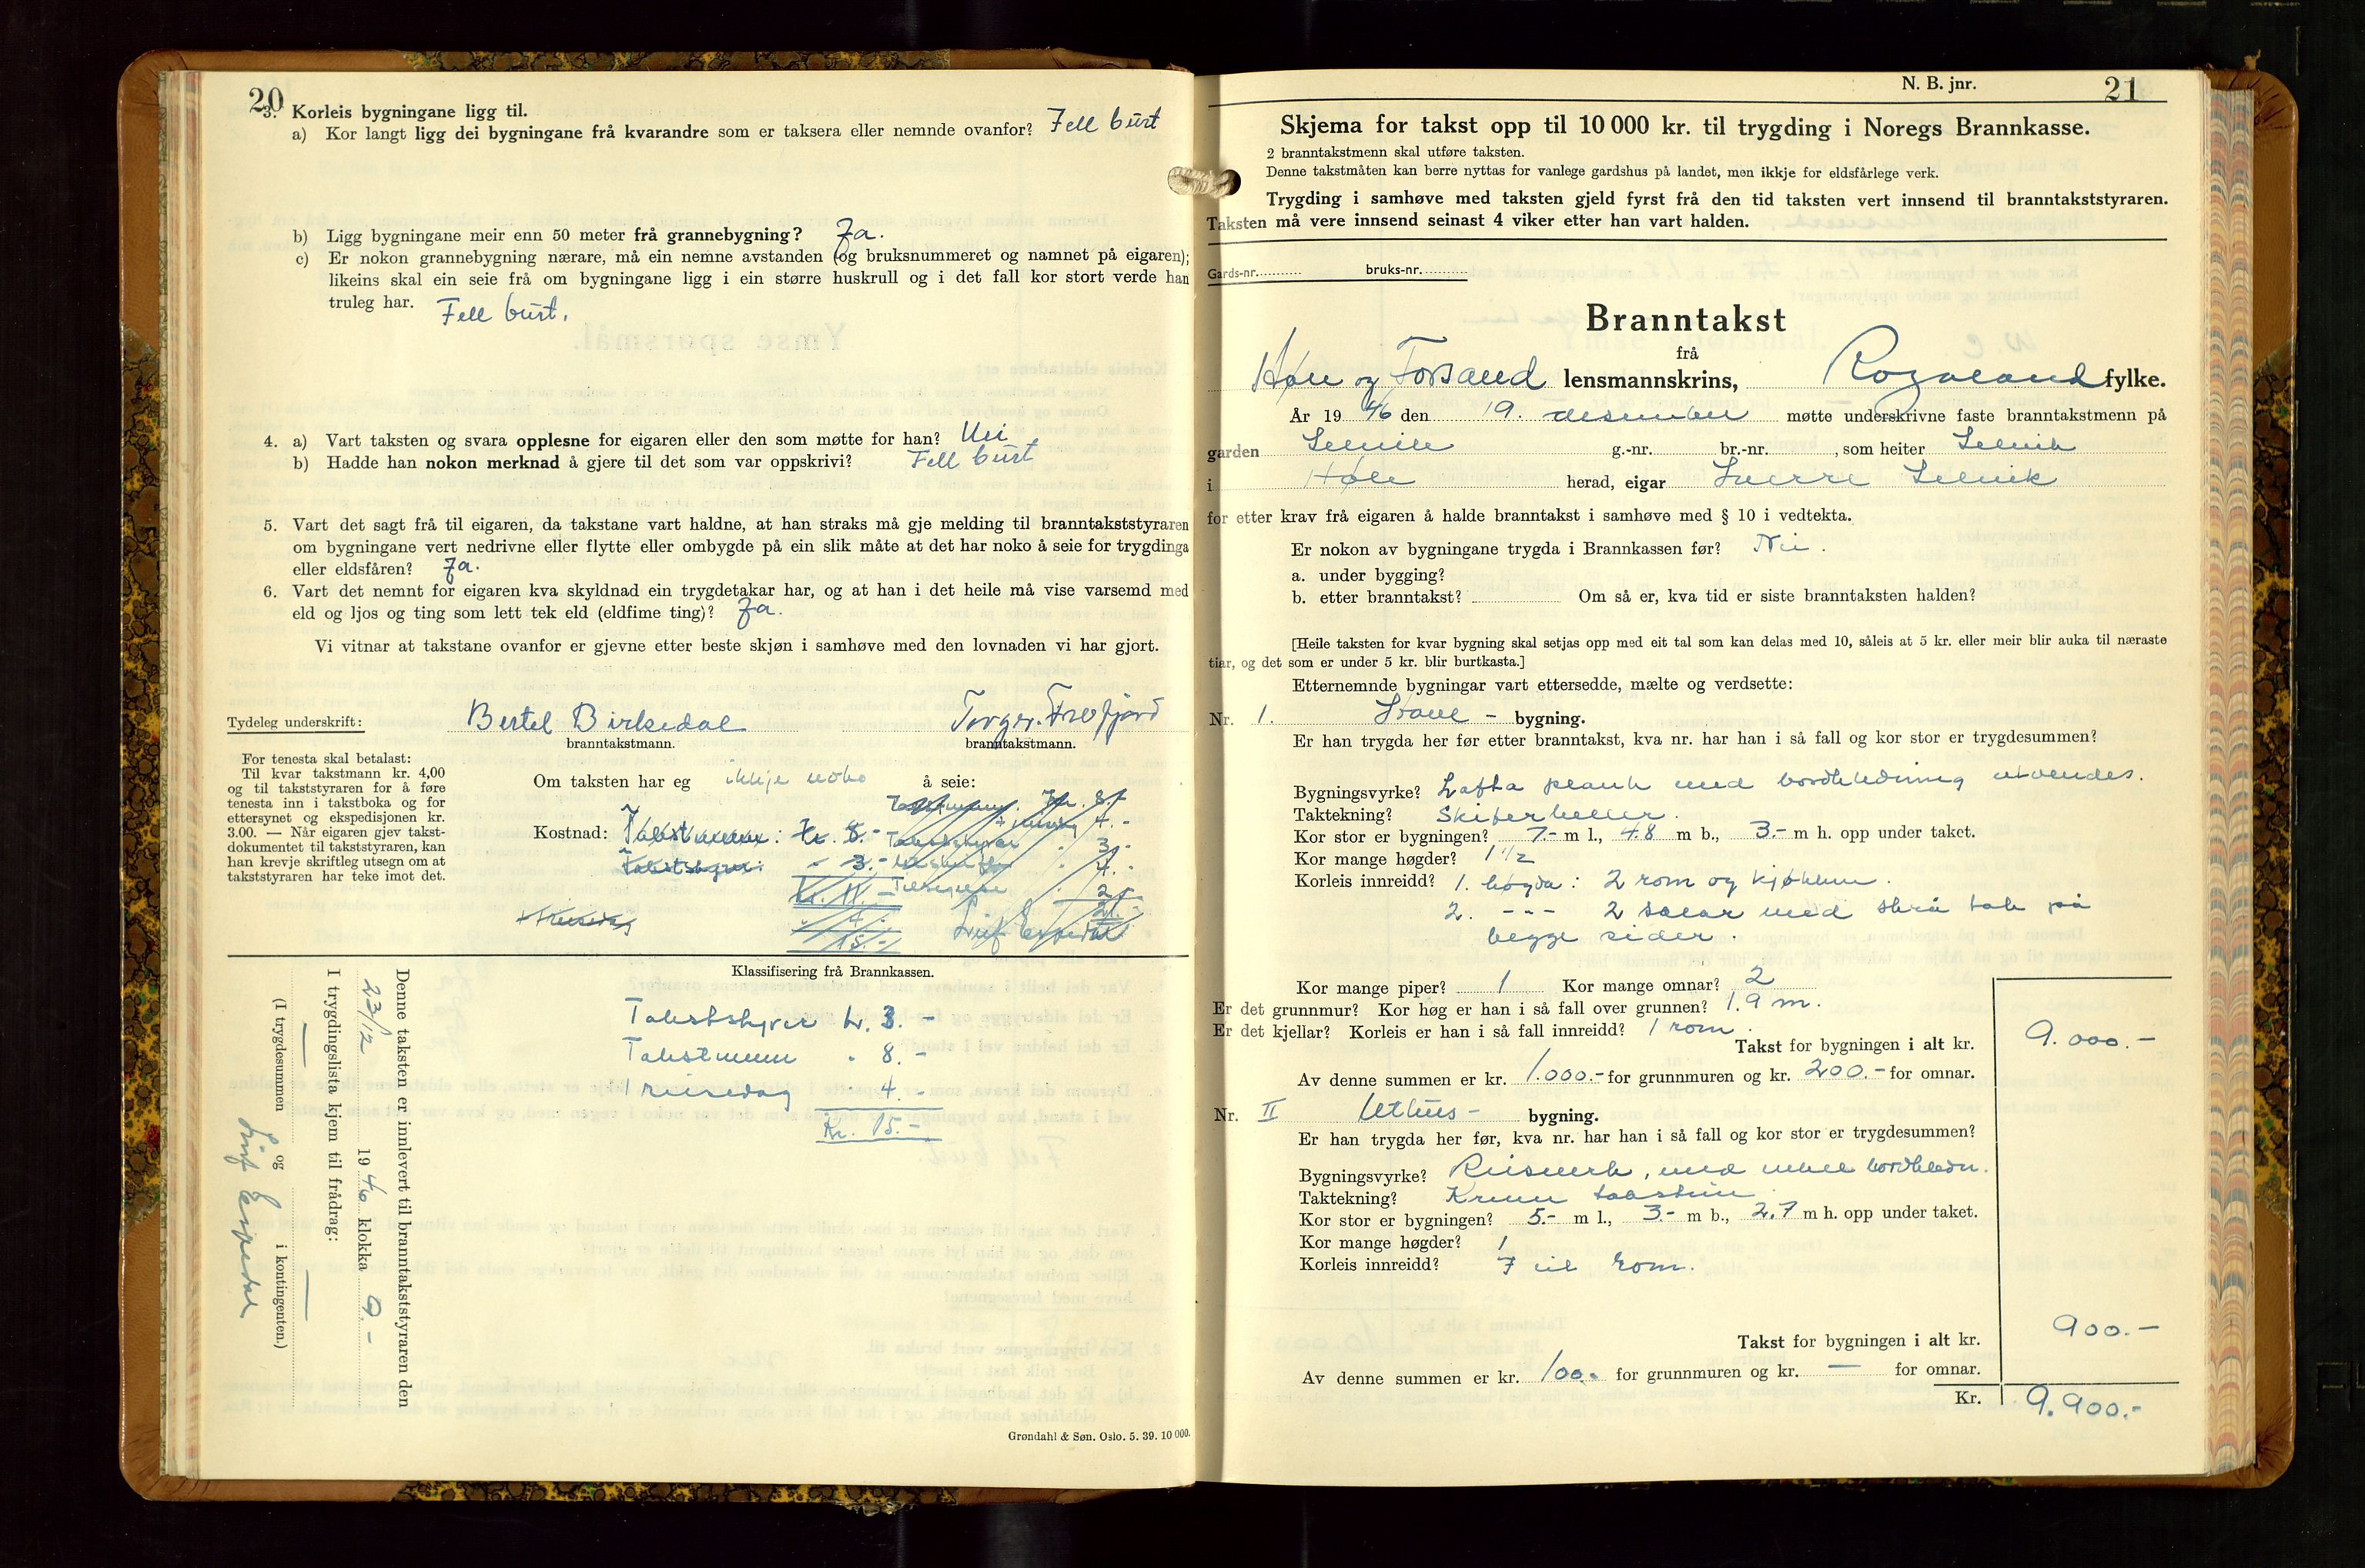 20
3. Korleis bygningane ligg til.
a) Kor langt ligg dei bygningane frå kvarandre som er taksera eller nemnde ovanfor? Fell burt
b) Ligg bygningane meir enn 50 meter frå grannebygning? Ja.
c) Er nokon grannebygning nærare, må ein nemne avstanden (og bruksnummeret og namnet på eigaren);
likeins skal ein seie frå om bygningane ligg i ein større huskrull og i det fall kor stort verde han
truleg har. Fell burt.
4. a) Vart taksten og svara opplesne for eigaren eller den som møtte for han? Nei
b) Hadde han nokon merknad å gjere til det som var oppskrivi? Fell burt
5. Vart det sagt frå til eigaren, da takstane vart haldne, at han straks må gje melding til branntakststyraren
om bygningane vert nedrivne eller flytte eller ombygde på ein slik måte at det har noko å seie for trygdinga
eller eldsfåren? Ja.
6. Vart det nemnt for eigaren kva skyldnad ein trygdetakar har, og at han i det heile må vise varsemd med
eld og ljos og ting som lett tek eld (eldfime ting)? Ja.
Vi vitnar at takstane ovanfor er gjevne etter beste skjøn i samhøve med den lovnaden vi har gjort.
Tydeleg underskrift: Bertel Birkedal Torger Frafjord
branntakstmann. branntakstmann.
For tenesta skal betalast:
Til kvar takstmann kr. 4,00
og til takststyraren for å føre
tenesta inn i takstboka og for
ettersynet og ekspedisjonen kr.
3.00. — Når eigaren gjev takst-
dokumentet til takststyraren, kan
han krevje skriftleg utsegn om at
takststyraren har teke imot det.
Om taksten har eg ikkje noko å seie:
Kostnad: Takstmenn: kr. 8.-
Takststyrar: - 3.-
Kr. 11.-
4.-
15.-
Leif Espedal
Klassifisering frå Brannkassen.
Takststyrar kr. 3.-
Takstmenn " 8.-
1 reisedag " 4.-
Kr. 15.-
Denne taksten er innlevert til branntakststyraren den
23/12 1946 klokka 9.-
I trygdingslista kjem til frådrag:
(I trygdesummen — og — i kontingenten.)
Leif Espedal
Grøndahl & Søn. Oslo. 5. 39. 10 000.
N. B. jnr. 21
Skjema for takst opp til 10 000 kr. til trygding i Noregs Brannkasse.
2 branntakstmenn skal utføre taksten.
Denne takstmåten kan berre nyttas for vanlege gardshus på landet, men ikkje for eldsfårlege verk.
Trygding i samhøve med taksten gjeld fyrst frå den tid taksten vert innsend til branntakststyraren.
Taksten må vere innsend seinast 4 viker etter han vart halden.
Gards-nr. bruks-nr.
Branntakst
frå
Høle og Forsand lensmannskrins, Rogaland fylke.
År 1946 den 19. desember møtte underskrivne faste branntakstmenn på
garden Selvik g.-nr. br.-nr. , som heiter Selvik
i Høle herad, eigar Sverre Selvik
for etter krav frå eigaren å halde branntakst i samhøve med § 10 i vedtekta.
Er nokon av bygningane trygda i Brannkassen før? Nei.
a. under bygging?
b. etter branntakst? Om så er, kva tid er siste branntaksten halden?
[Heile taksten for kvar bygning skal setjas opp med eit tal som kan delas med 10, såleis at 5 kr. eller meir blir auka til næraste
tiar, og det som er under 5 kr. blir burtkasta.]
Etternemnde bygningar vart ettersedde, mælte og verdsette:
Nr. 1. Våne- bygning.
Er han trygda her før etter branntakst, kva nr. har han i så fall og kor stor er trygdesummen?
Bygningsvyrke? Lafta plank med bordkledning utvendes.
Taktekning? Skiferheller.
Kor stor er bygningen? 7.- m l., 4.8 m b., 3.- m h. opp under taket.
Kor mange høgder? 1 1/2
Korleis innreidd? 1. høgda: 2 rom og kjøkken.
2. -"- 2 salar med skrå tak på
begge sider.
Kor mange piper? 1 Kor mange omnar? 2
Er det grunnmur? Kor høg er han i så fall over grunnen? 1.9 m.
Er det kjellar? Korleis er han i så fall innreidd? 1 rom.
Takst for bygningen i alt kr. 9.000.-
Av denne summen er kr. 1.000.- for grunnmuren og kr. 200.- for omnar.
Nr. II Uthus- bygning.
Er han trygda her før, kva nr. har han i så fall og kor stor er trygdesummen?
Bygningsvyrke? Reisverk, med enkel bordkledn.
Taktekning? Krum takstein
Kor stor er bygningen? 5.- m l., 3.- m b., 2.7 m h. opp under taket.
Kor mange høgder? 1
Korleis innreidd? I eit rom.
Takst for bygningen i alt kr. 900.-
Av denne summen er kr. 100.- for grunnmuren og kr. — for omnar.
Kr. 9.900.-